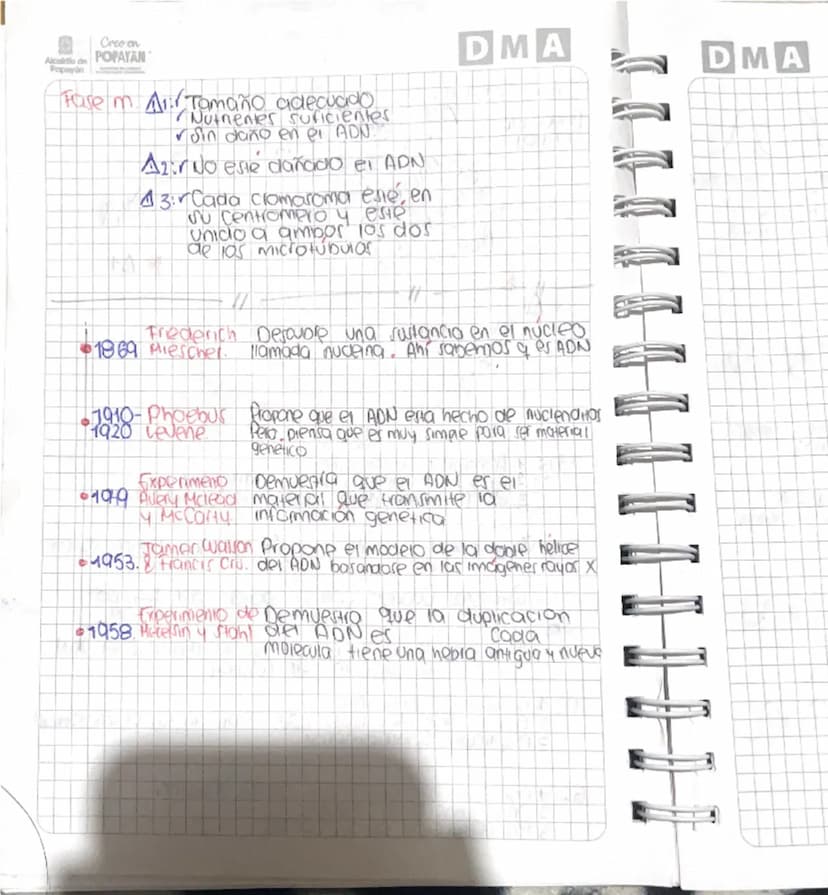 Creo en
Alcaldía de Popayán
POPAYÁN
DMA
DMA
Fase m. Δ1:✓ Tamaño adecuado
✓ Nutrientes suficientes
✓ Sin daño en el ADN
Δ2:✓ No esté dañado el ADN
Δ3:✓ Cada cromosoma esté en
su centromero y esté
unido a ambos los dos
de los microtúbulos
1869 Frederich Miescher. Descubre una sustancia en el núcleo
llamada nucleina. Ahí sabemos q es ADN
1910-1920 Phoebus Levene Propone que el ADN esta hecho de
Pero, piensa que es muy simple para ser material
genético
Demuestra que el ADN es el
Avery Mcleod material que transmite la
y McCarty información genetica
Propone el modelo de la doble hélice
1953. & Francis del ADN basandose en las imágenes rayos X
Experimento de Demuestra que la duplicacion
1958 y Stahl del ADN es cada
molecula tiene una hebra antigua y nueva